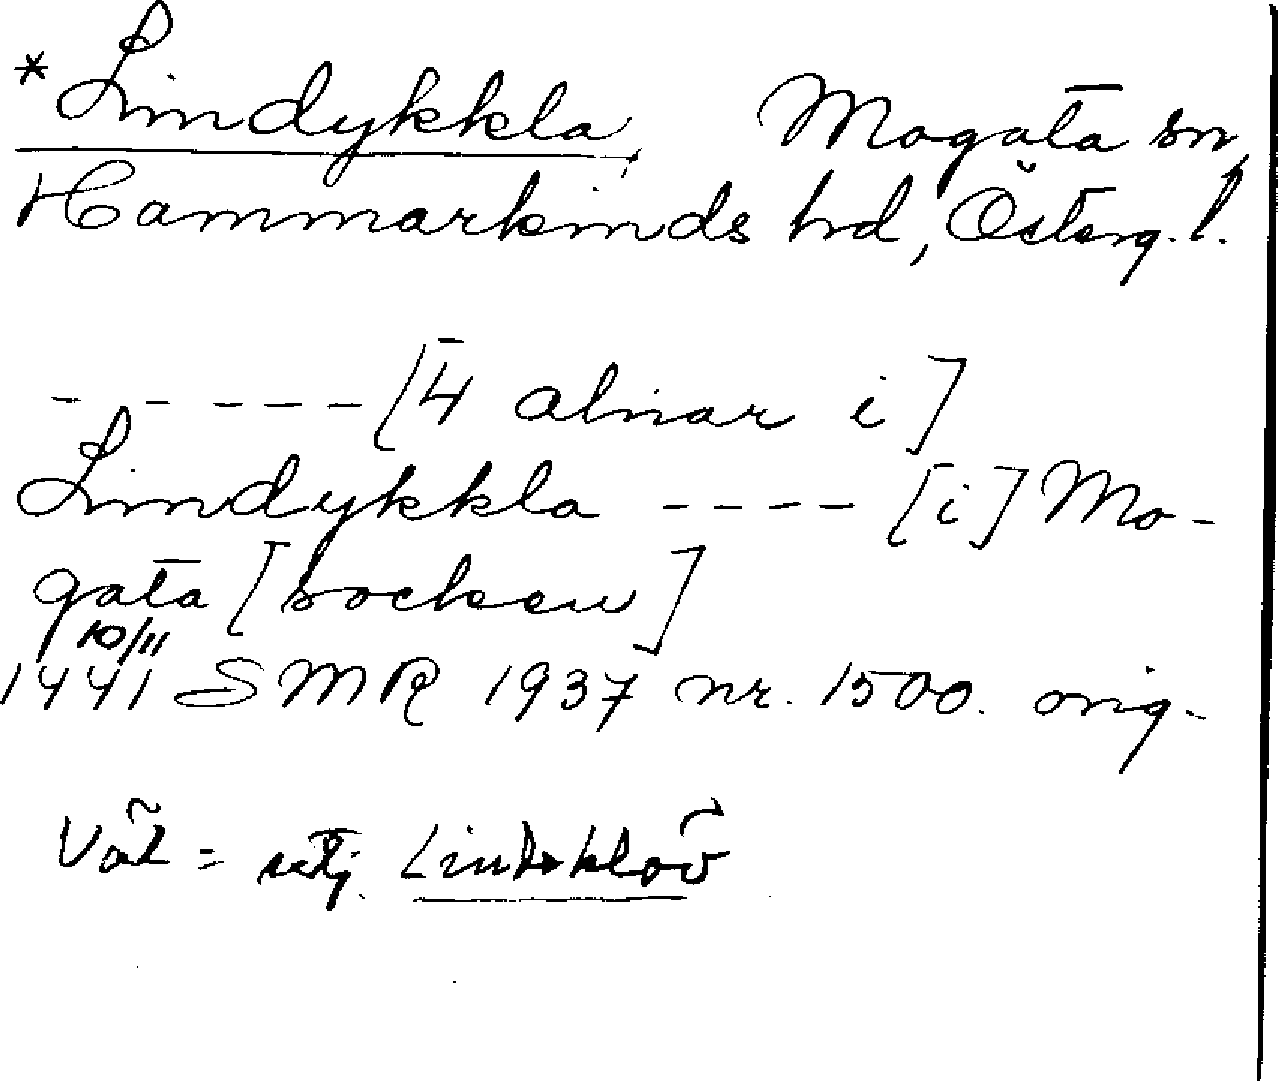 *Lindykkla, Mogata sn,
Hammarkinds hd, Österg.l.
- - - - - - [4 alnar i]
Lindykkla - - - - [i] Mo-
gata [socken]
10/11
1441 SMR 1937 nr. 1500. orig.
Väl = utj.